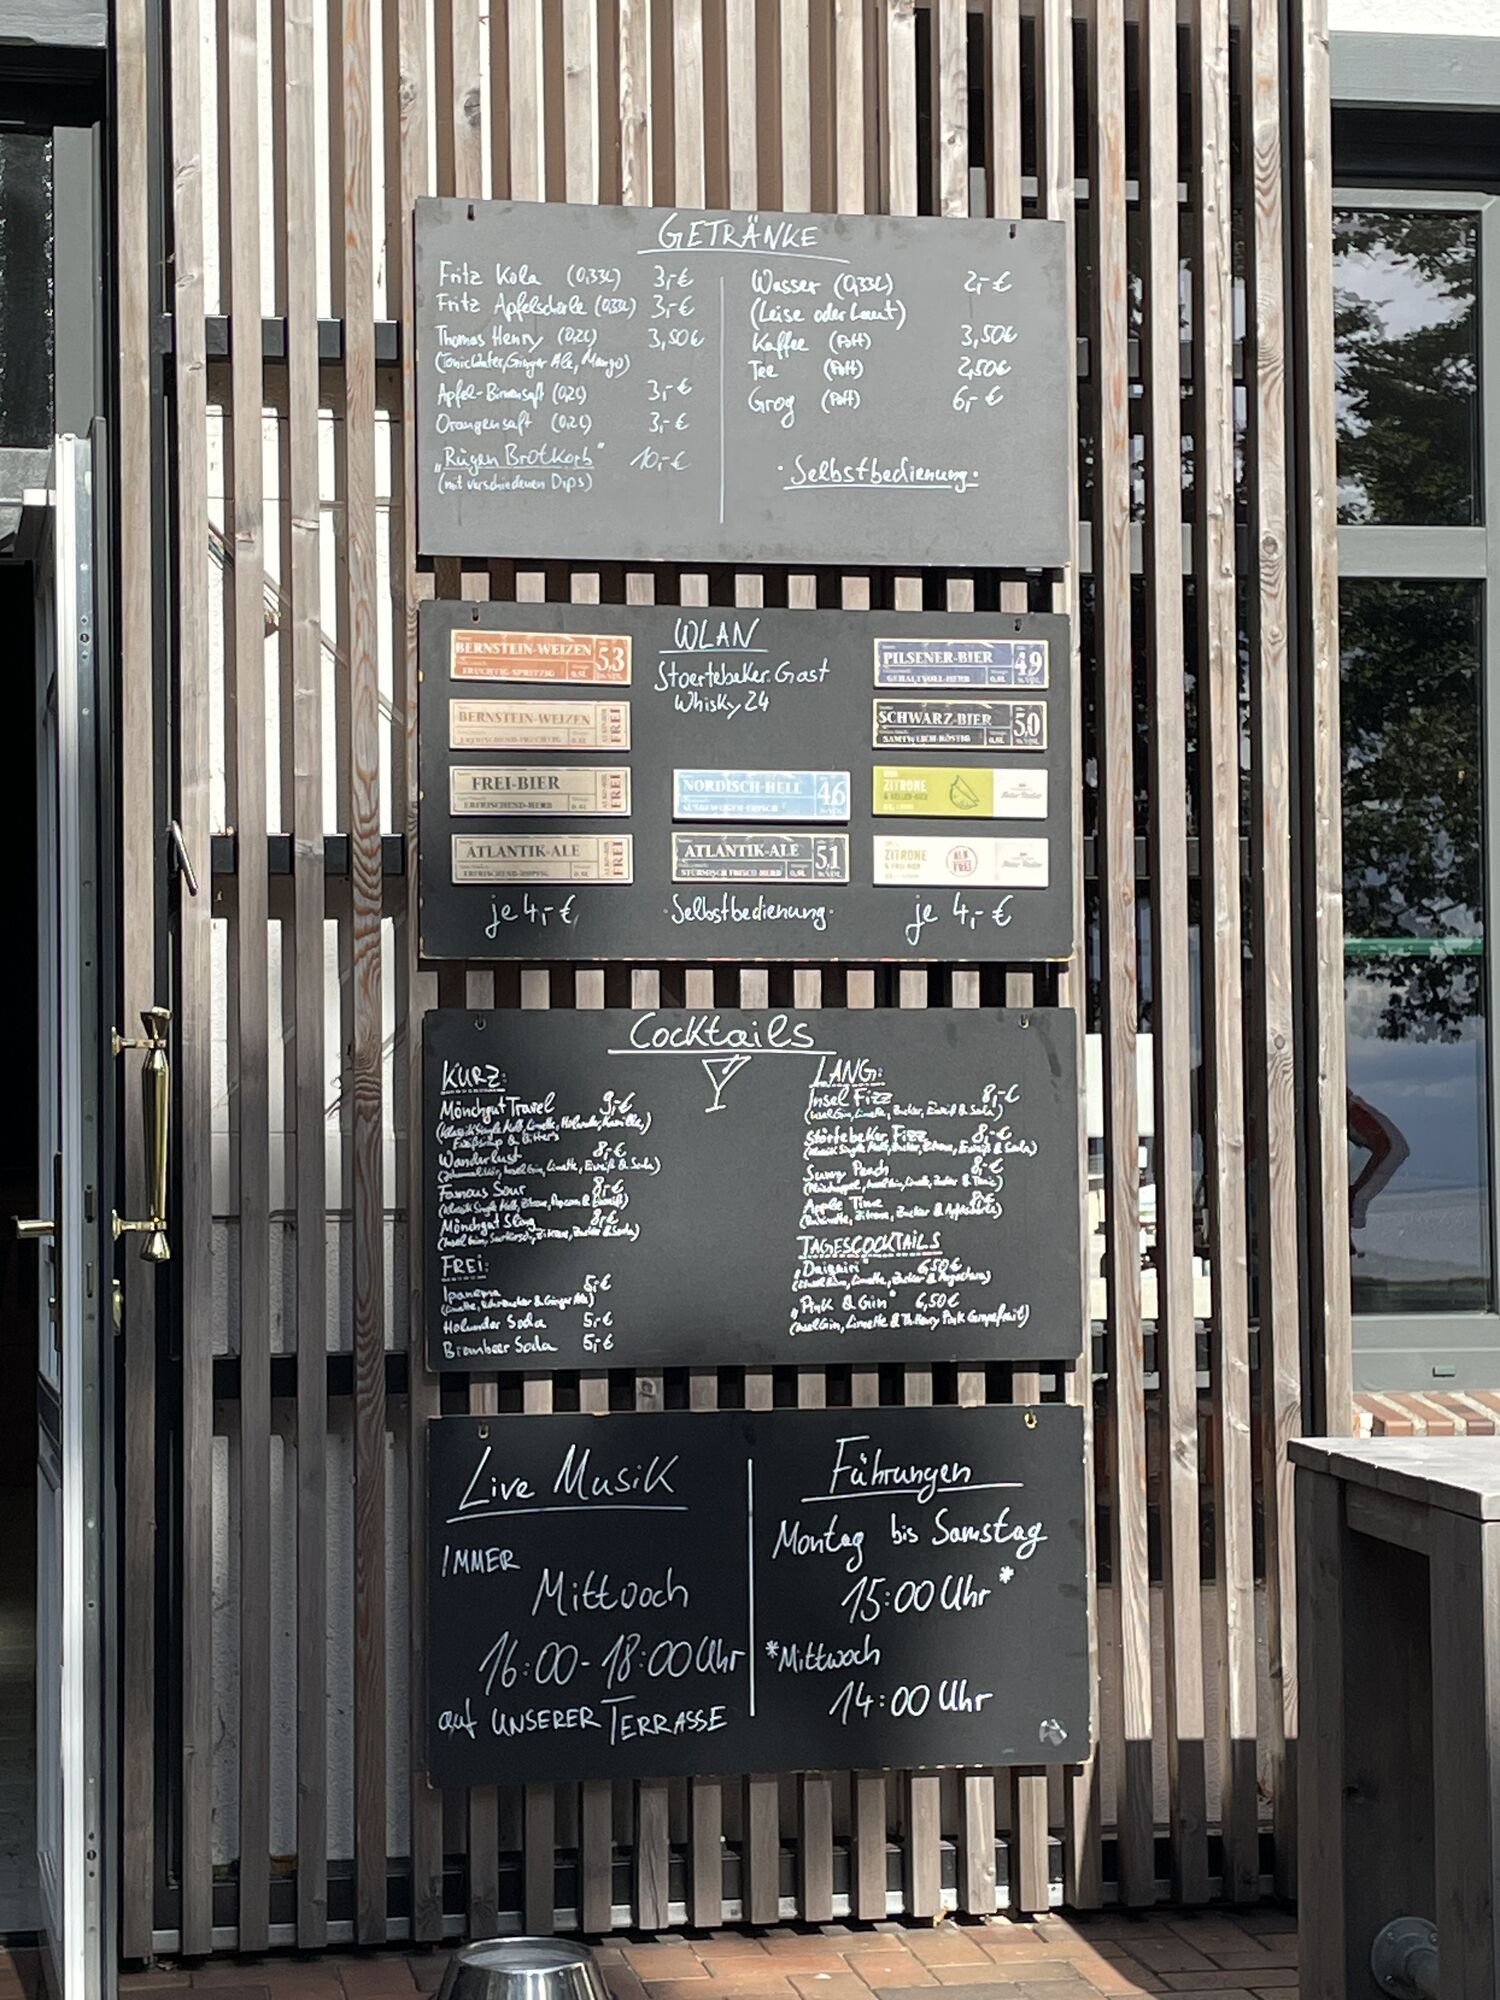 GETRÄNKE
Fritz Kola (0,33L) 3,-€
Fritz Apfelschorle (0,33L) 3,-€
Thomas Henry (0,2L) 3,50€
(Tonic Water, Ginger Ale, Mango)
Apfel-Birnensaft (0,2L) 3,-€
Orangensaft (0,2L) 3,-€
„Rügen Brotkorb" 10,-€
(mit verschiedenen Dips)
Wasser (0,33L) 2,-€
(Leise oder Laut)
Kaffee (Pott) 3,50€
Tee (Pott) 2,50€
Grog (Pott) 6,-€
·Selbstbedienung·
WLAN
Stoertebeker.Gast
Whisky24
BERNSTEIN-WEIZEN 5,3
FRUCHTIG-SPRITZIG 0,5L
BERNSTEIN-WEIZEN FREI
ERFRISCHEND-FRUCHTIG 0,5L
FREI-BIER FREI
ERFRISCHEND-HERB 0,5L
ATLANTIK-ALE FREI
ERFRISCHEND-HOPFIG 0,5L
je 4,-€
NORDISCH-HELL 4,6
ATLANTIK-ALE 5,1
STÜRMISCH FRISCH HERB 0,5L
·Selbstbedienung·
PILSENER-BIER 4,9
GEHALTVOLL-HERB 0,5L
SCHWARZ-BIER 5,0
SAMTWEICH-RÖSTIG 0,5L
ZITRONE
& KELLER-BIER
ZITRONE
& FREI-BIER
ALK FREI
je 4,-€
Cocktails
KURZ:
Mönchgut Travel 9,-€
(Klassik Single Malt, Limette, Holunder, Kamille,
& Bitters
Wanderlust 8,-€
Insel Gin, Limette, Eiweiß & Soda)
Famous Sour 8,-€
(Klassik Single Malt, Zitrone, Popcorn & Eiweiß)
Mönchgut Sling 8,-€
(Insel Gin, Sauerkirsch, Zitrone, Zucker & Soda)
FREI:
Ipanema 5,-€
(Limette, Rohrzucker & Ginger Ale)
Holunder Soda 5,-€
Brombeer Soda 5,-€
LANG:
Insel Fizz 8,-€
(Insel Gin, Limette, Zucker, Eiweiß & Soda)
Störtebeker Fizz 8,-€
(Klassik Single Malt, Zucker, Zitrone, Eiweiß & Soda)
Sunny Peach 8,-€
Insel Gin, Limette, Zucker & Tonic)
Apple Time 8,-€
Zitrone, Zucker & Apfelschorle)
TAGESCOCKTAILS
„Daiquiri" 6,50€
Limette, Zucker &
„Pink & Gin" 6,50€
(Insel Gin, Limette & Th. Henry Pink Grapefruit)
Live Musik
IMMER
Mittwoch
16:00-18:00 Uhr
auf UNSERER TERRASSE
Führungen
Montag bis Samstag
15:00 Uhr*
*Mittwoch
14:00 Uhr